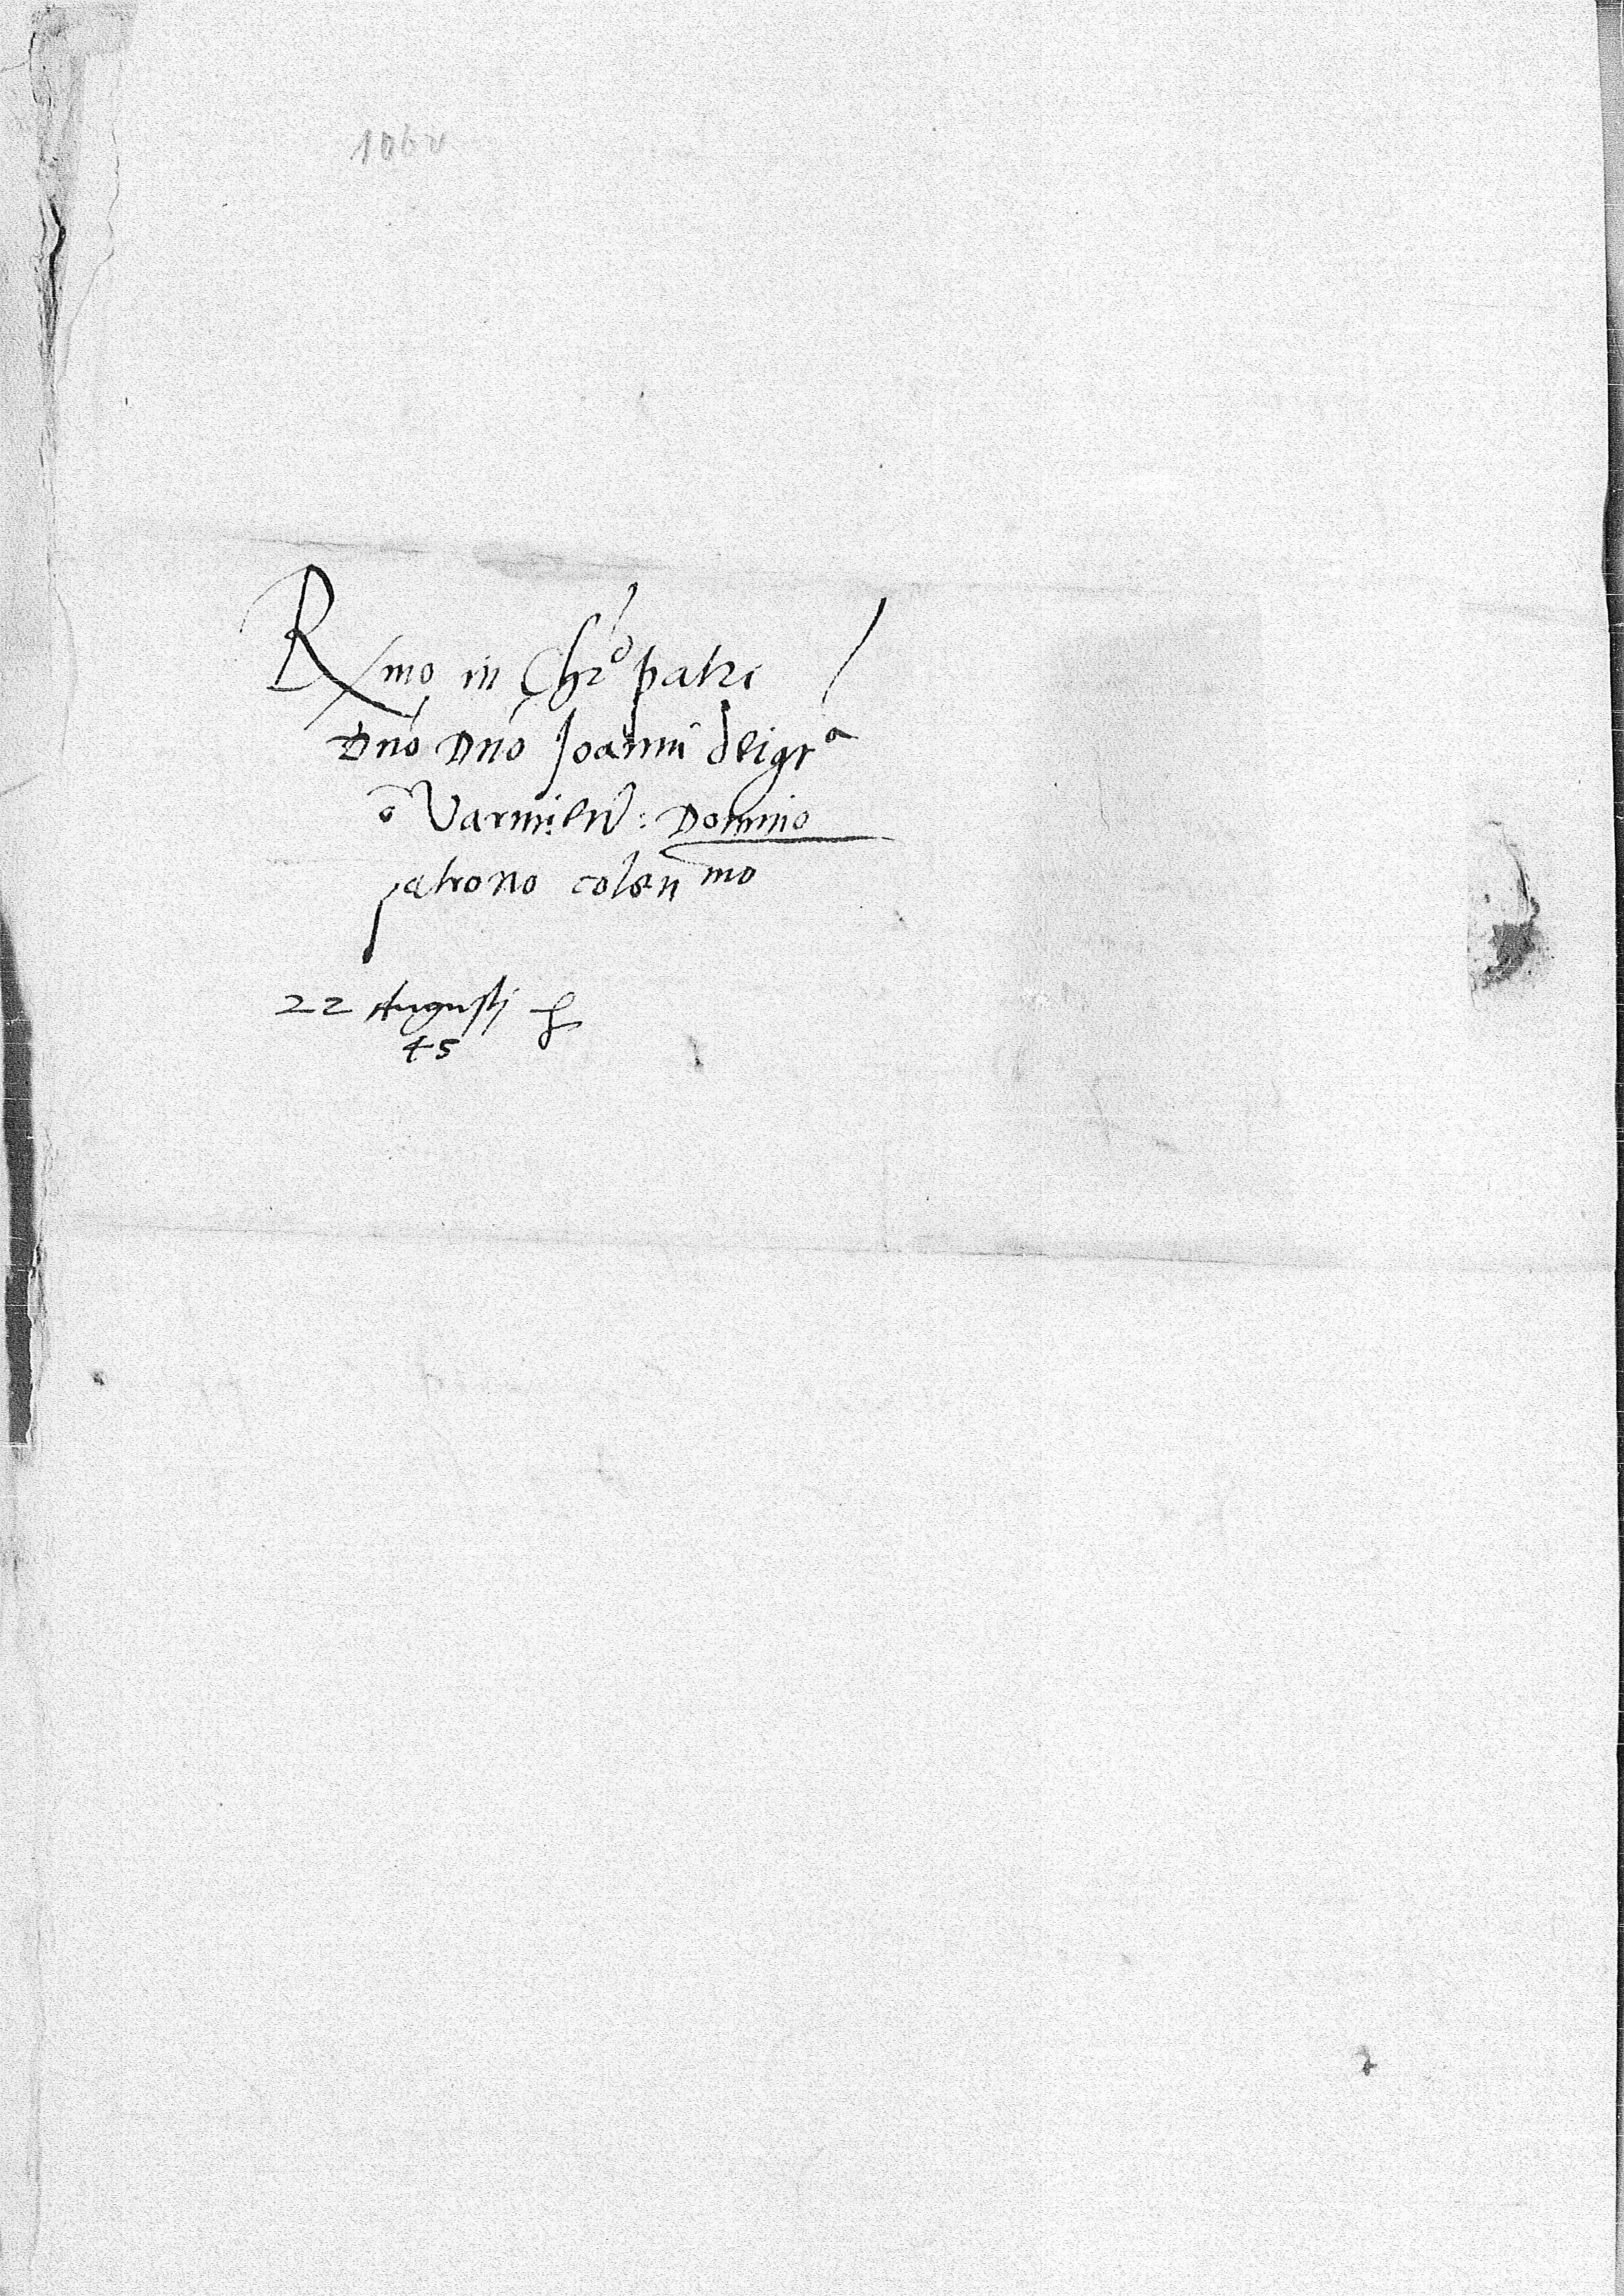 Rmo in Chro patri
Dno Dno Joanni dei gra
Varmien: Domino
patrono colenmo
22 Augusti
45